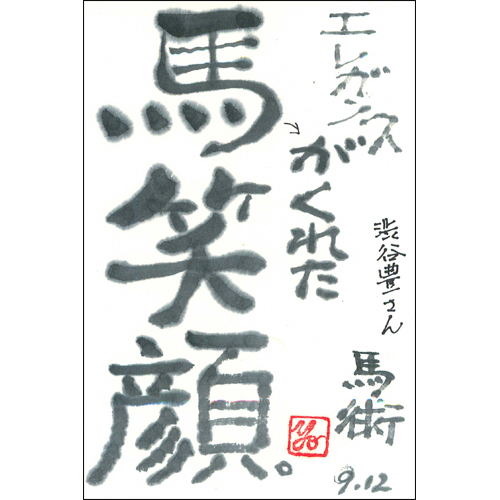 エレガンス
がくれた
馬笑顔。
渋谷豊さん
馬術
9.12